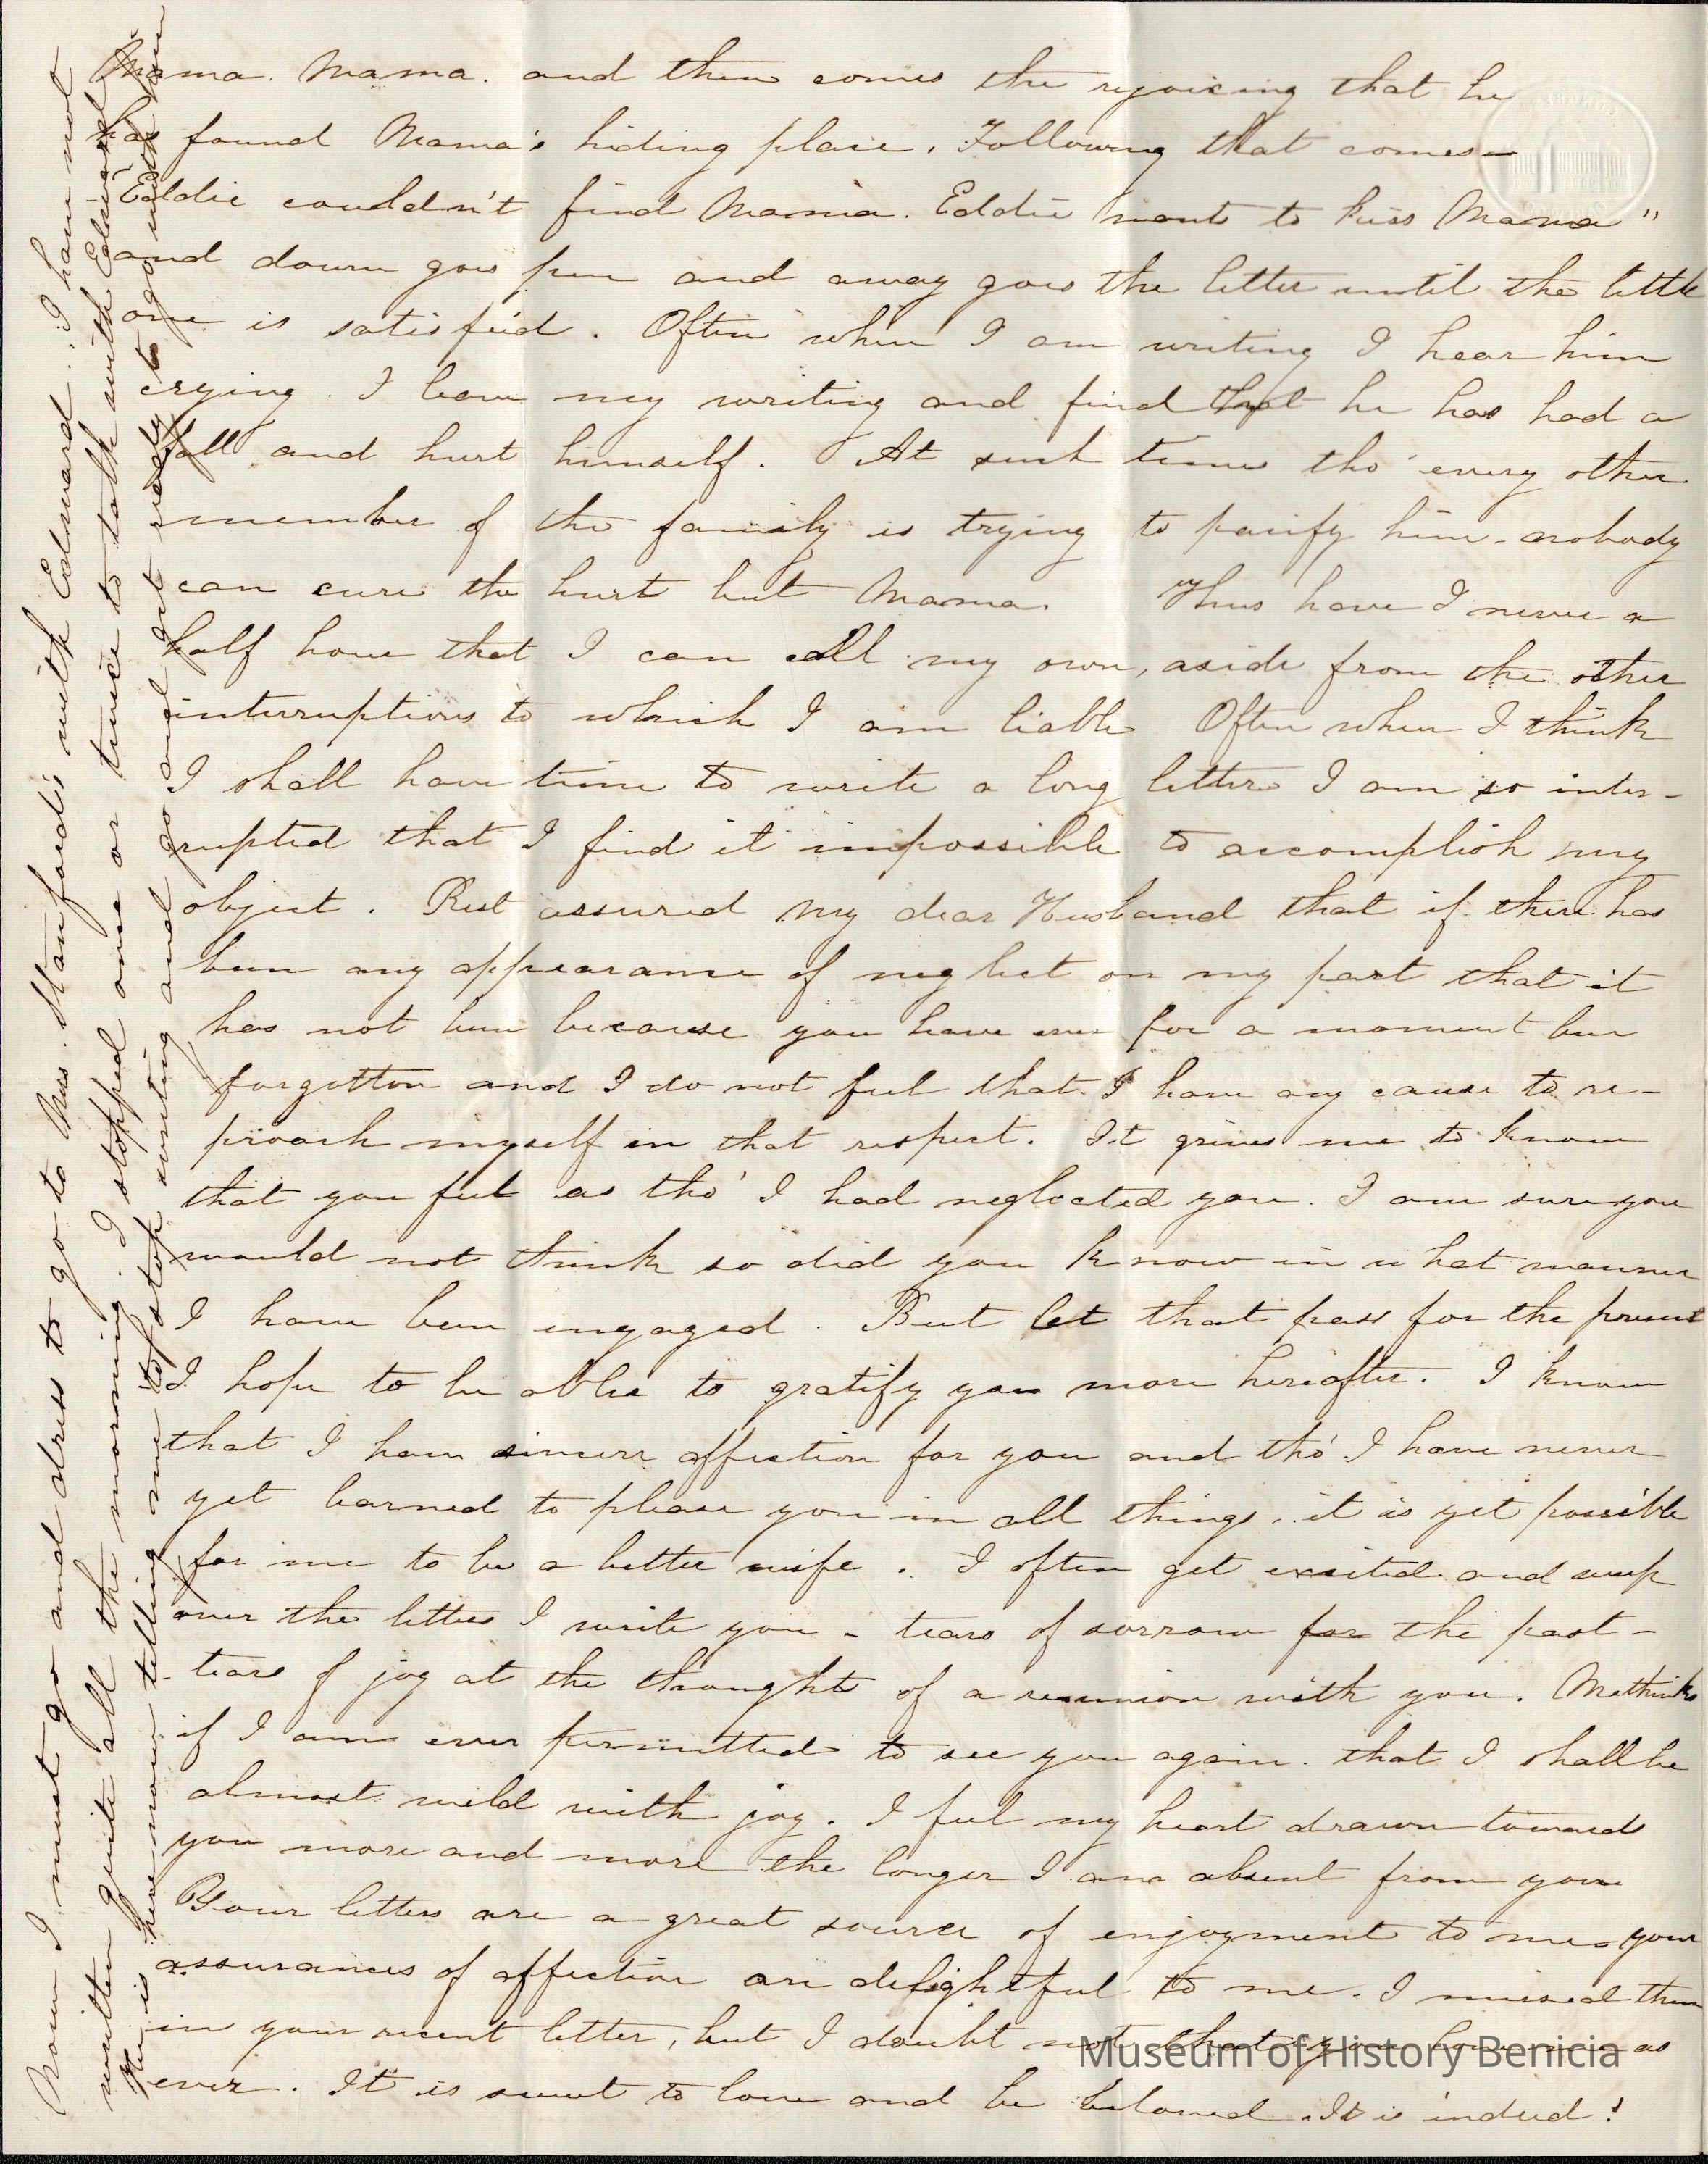 Mama. Mama. and then comes the rejoicing that he
has found Mama's hiding place. Following that comes—
"Eddie couldn't find Mama. Eddie wants to kiss Mama"
and down goes pen and away goes the letter until the little
one is satisfied. Often when I am writing I hear him
crying. I leave my writing and find that he has had a
fall and hurt himself. At such times tho' every other
member of the family is trying to pacify him - nobody
can cure the hurt but Mama. Thus have I never a
half hour that I can call my own, aside from the other
interruptions to which I am liable Often when I think
I shall have time to write a long letter I am so inter-
rupted that I find it impossible to accomplish my
object. Rest assured my dear Husband that if there has
been any appearance of neglect on my part that it
has not been because you have ever for a moment been
forgotton and I do not feel that I have any cause to re-
proach myself in that respect. It grieves me to know
that you feel as tho' I had neglected you. I am sure you
would not think so did you know in what manner
I have been engaged. But let that pass for the present
I hope to be able to gratify you more hereafter. I know
that I have sincere affection for you and tho' I have never
yet learned to please you in all things, it is yet possible
for me to be a better wife. I often get excited and weep
over the letters I write you - tears of sorrow for the past -
tears of joy at the thoughts of a reunion with you. Methinks
if I am ever permitted to see you again. that I shall be
almost wild with joy. I feel my heart drawn towards
you more and more the longer I am absent from you
Your letters are a great source of enjoyment to me - your
assurances of affection are delightful to me. I missed them
in your recent letter, but I doubt not that you love me as
ever. It is sweet to love and be beloved. It is indeed!
Now I must go and dress to go to Mrs. Stanford's with Edward. I have not
written quite all the morning. I stopped once or twice to talk with Edward
He is here now telling me to stop writing and go and get ready to go with him
Museum of History Benicia